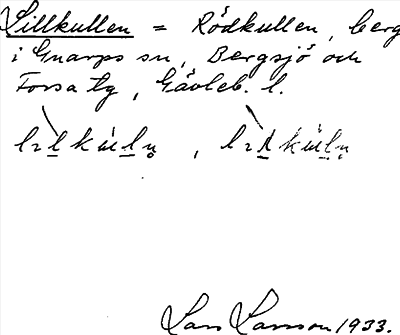 Lillkullen = Rödkullen, berg
i Gnarps sn, Bergsjö och
Forsa tg, Gävleb. l.
Lars Larsson 1933.